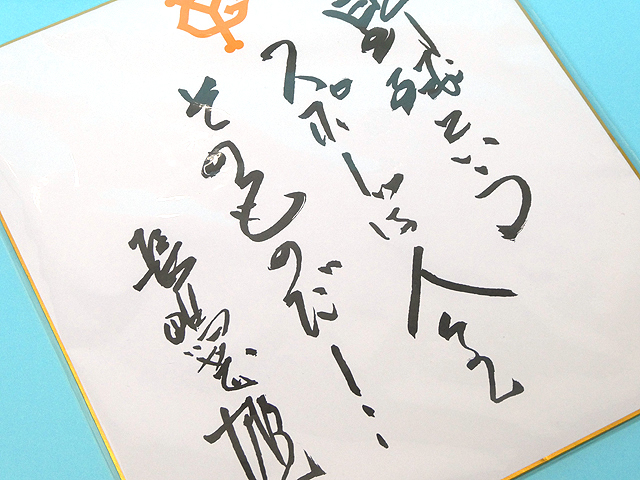 野球というスポーツは人生
そのものだ!
長嶋茂雄